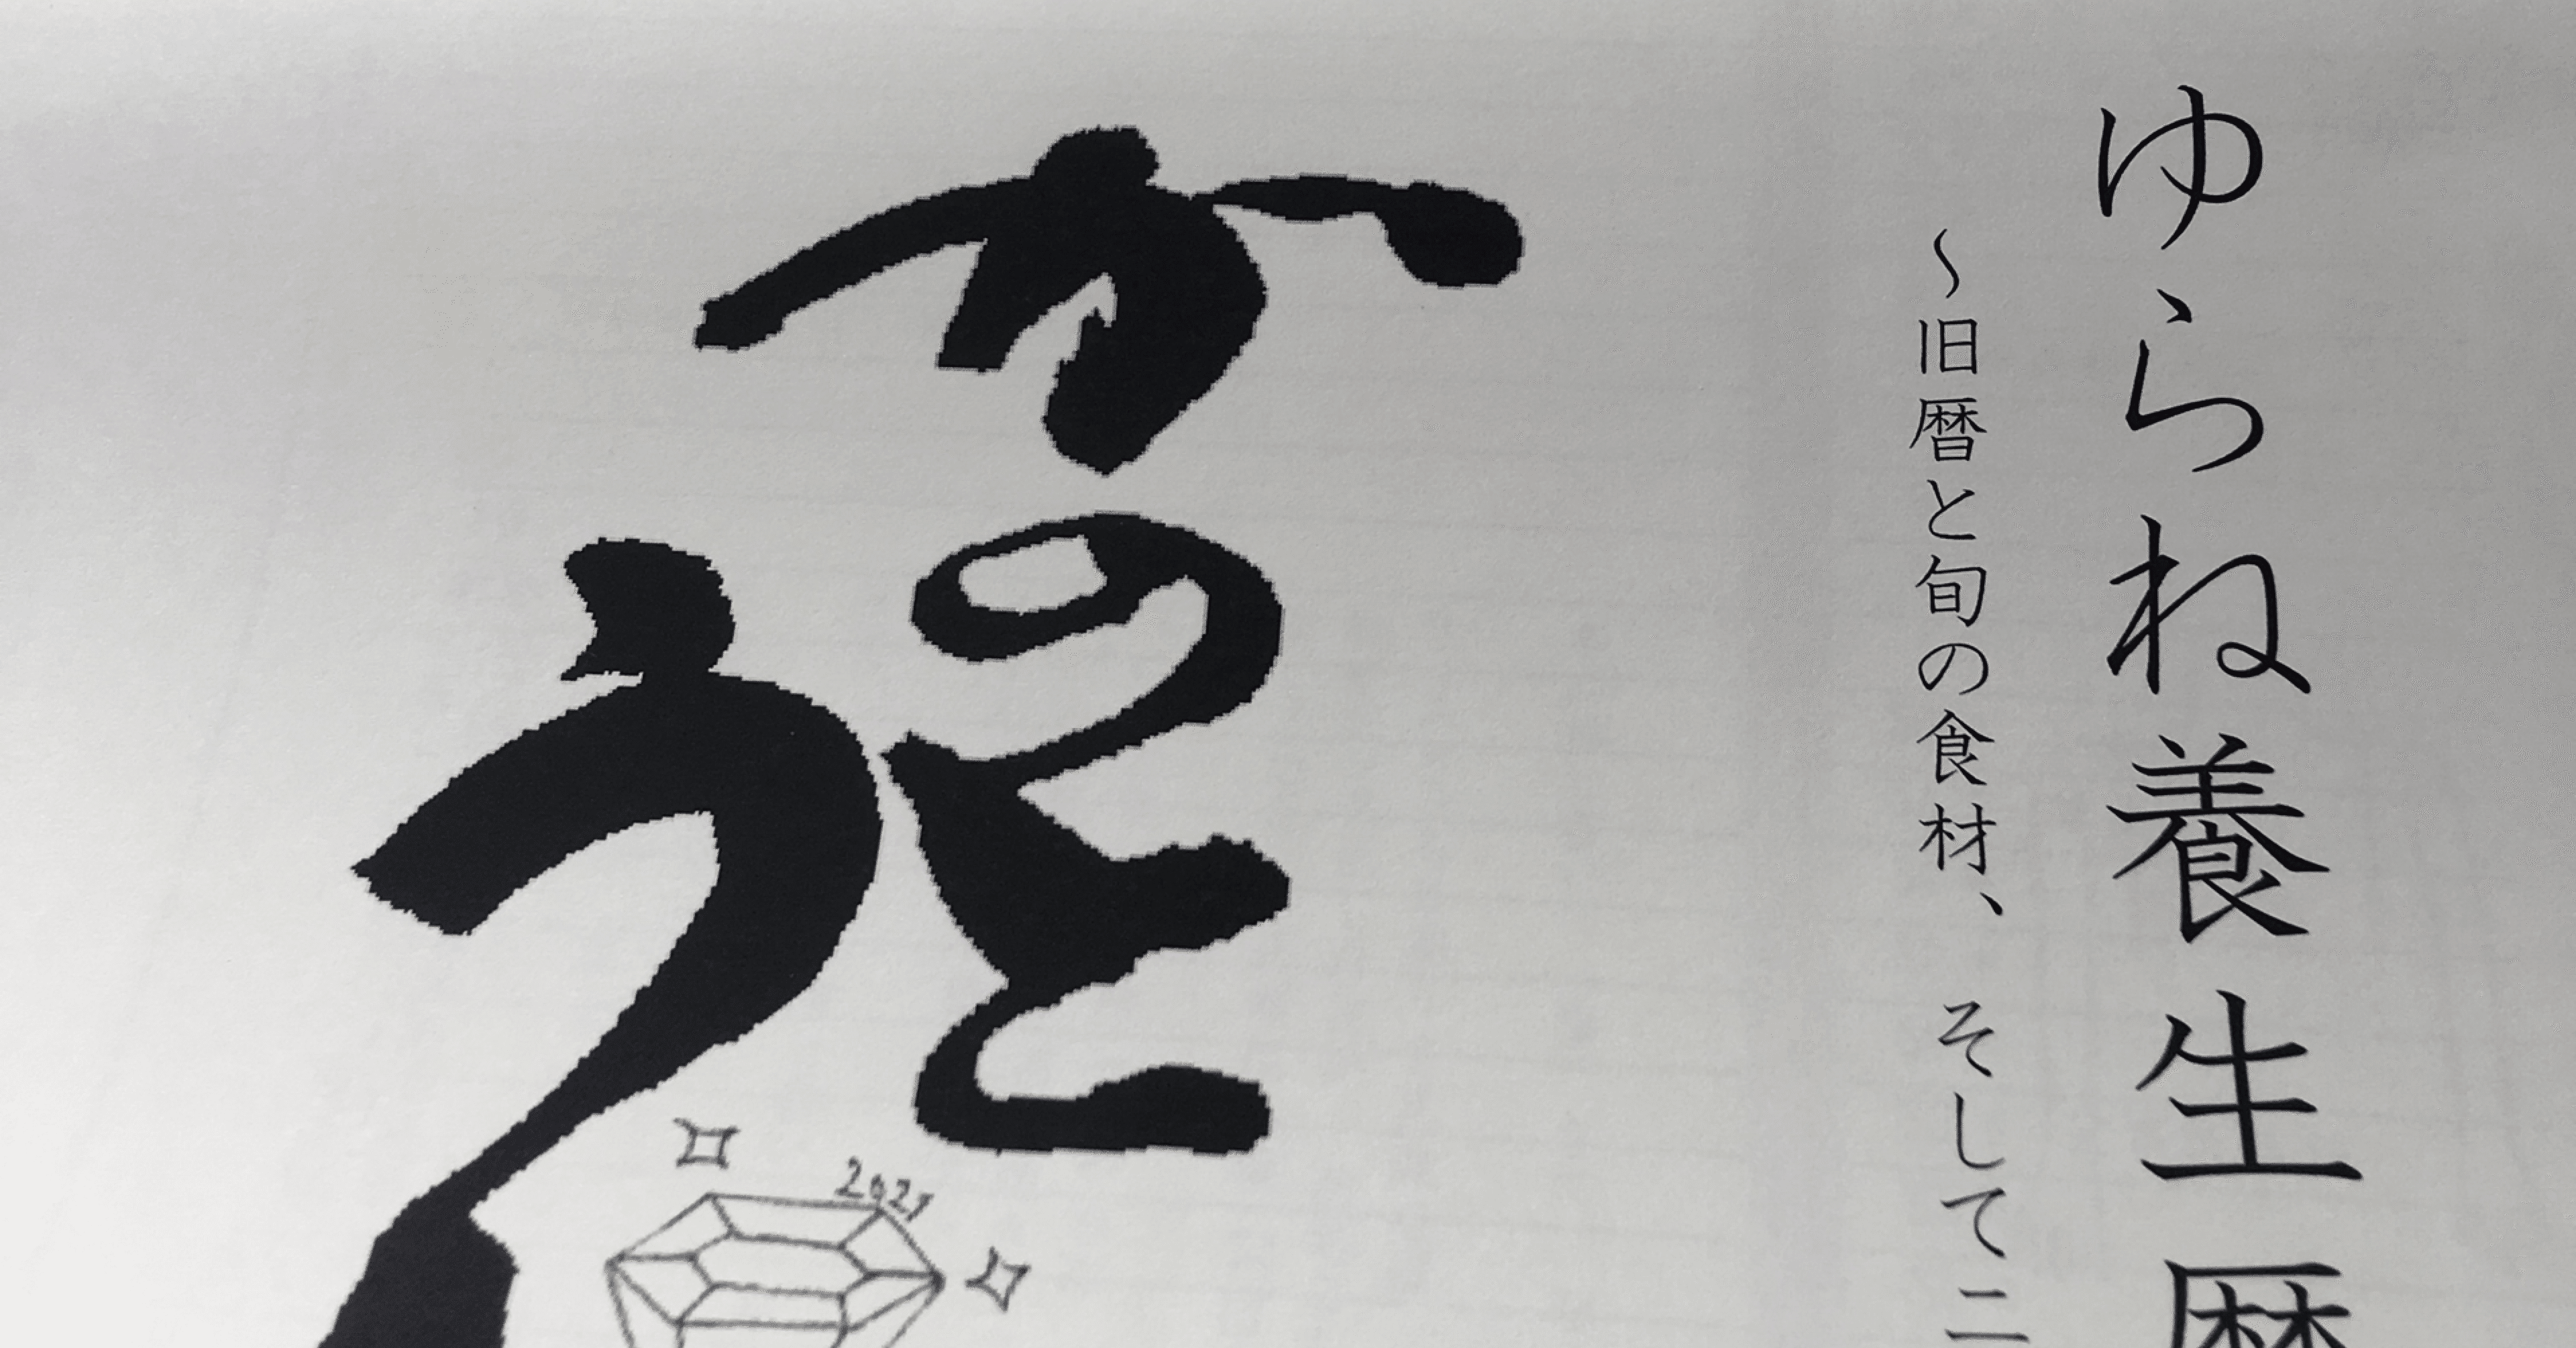 ゆらね養生暦
～旧暦と旬の食材、そして二
かのと
う
2021